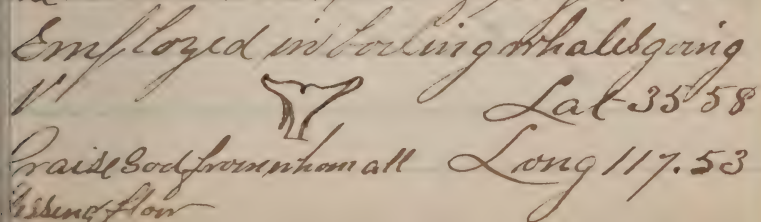 Employed in boiling whales going
Lat 35 58
Praise God from whom all Long 117.53
flow